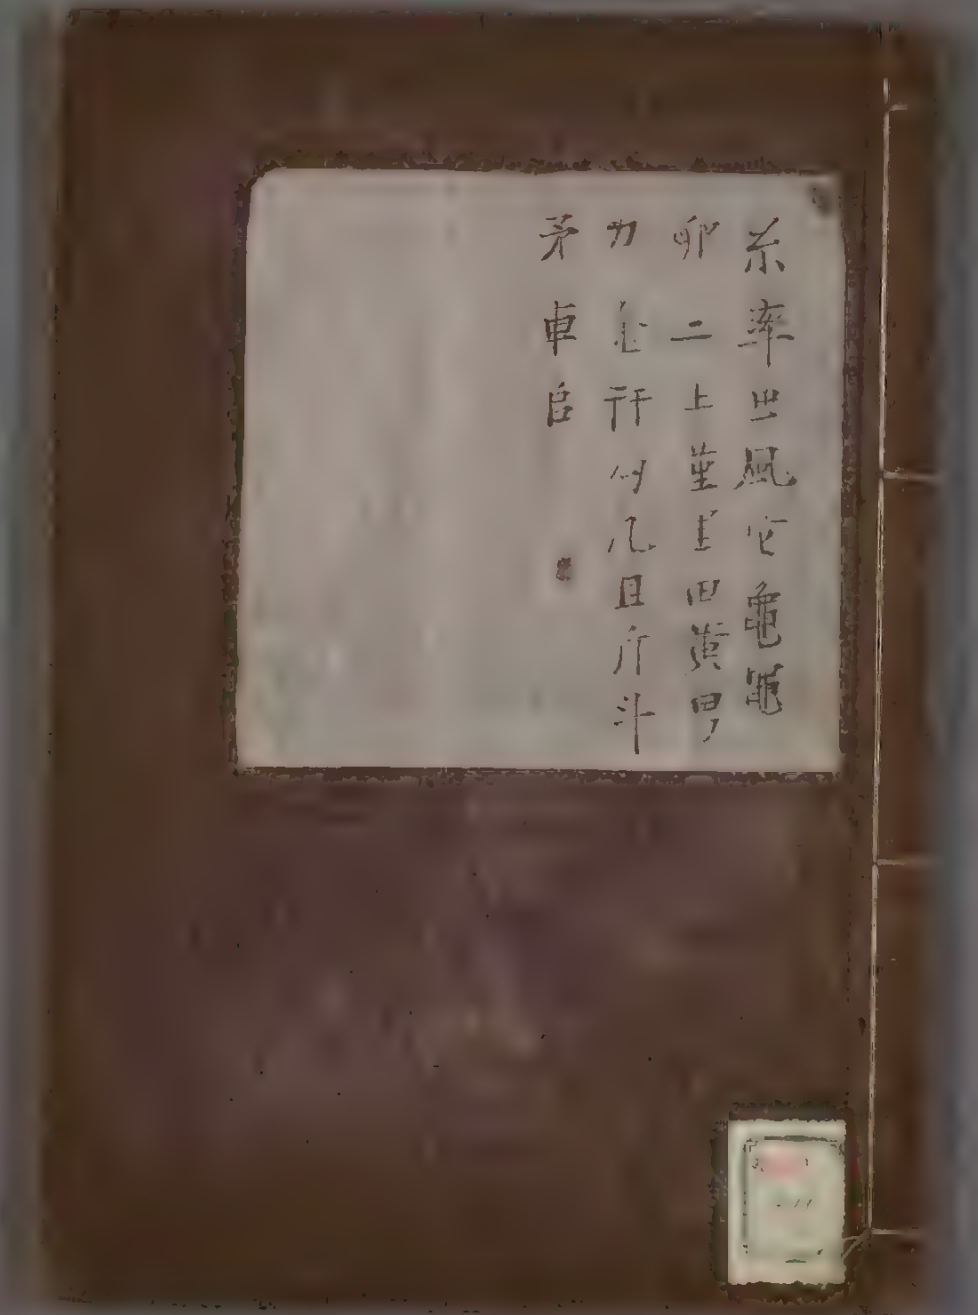 糸率虫風它龜黽
卵二土堇里田黃男
力金幵勺几且斤斗
矛車𠂤